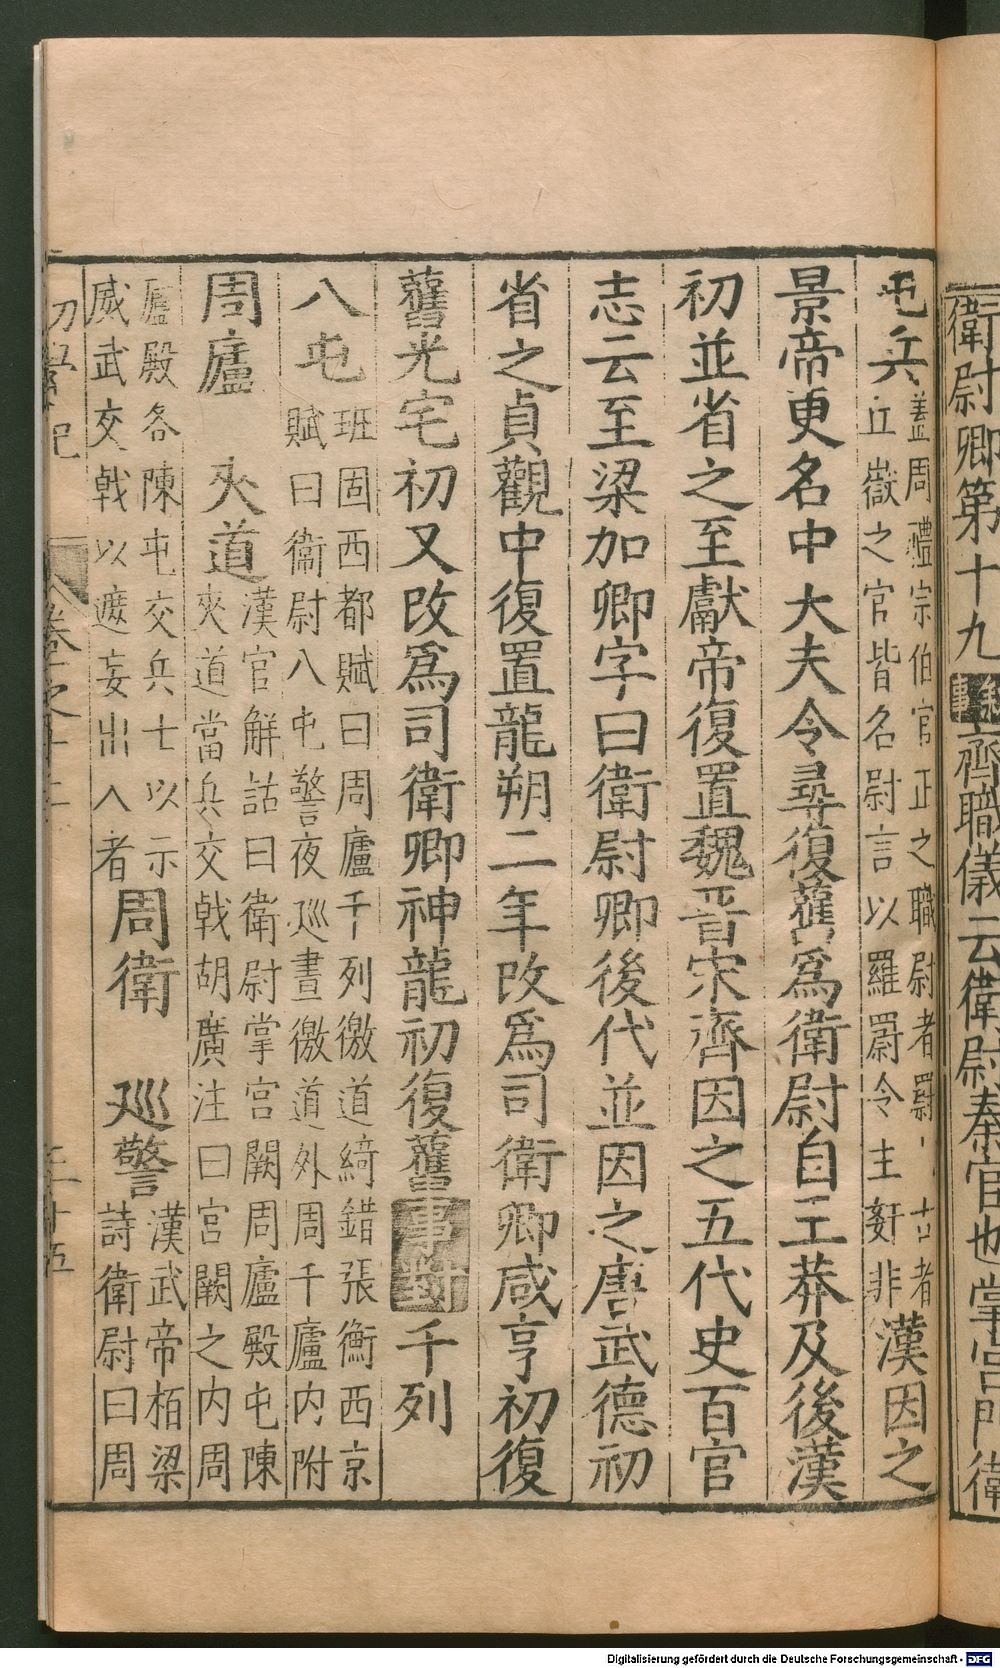 衛尉卿第十九敘事齊職儀云衛尉秦官也掌宮門衛
屯兵
蓋周禮宗伯官正之職尉者罻
古者
丘嶽之官皆名尉言以羅罻令主姧非
漢因之
景帝更名中大夫令尋復舊爲衛尉自王莽及後漢
初並省之至獻帝復置魏晉宋齊因之五代史百官
志云至梁加卿字曰衛尉卿後代並因之唐武德初
省之貞觀中復置龍朔二年改爲司衛卿咸亨初復
舊光宅初又改爲司衛卿神龍初復舊事對千列
八屯
班固西都賦曰周廬千列徼道綺錯張衡西京
賦曰衛尉八屯警夜巡晝徼道外周千廬內附
周廬 夾道
漢官解詁曰衛尉掌宮闕周廬殿屯陳
夾道當兵交戟胡廣注曰宮闕之內周
廬殿各陳屯交兵士以示
威武交戟以遮妄出入者
周衛 巡警
漢武帝栢梁
詩衛尉曰周
初學記 卷之十二 三十五
Digitalisierung gefördert durch die Deutsche Forschungsgemeinschaft - DFG